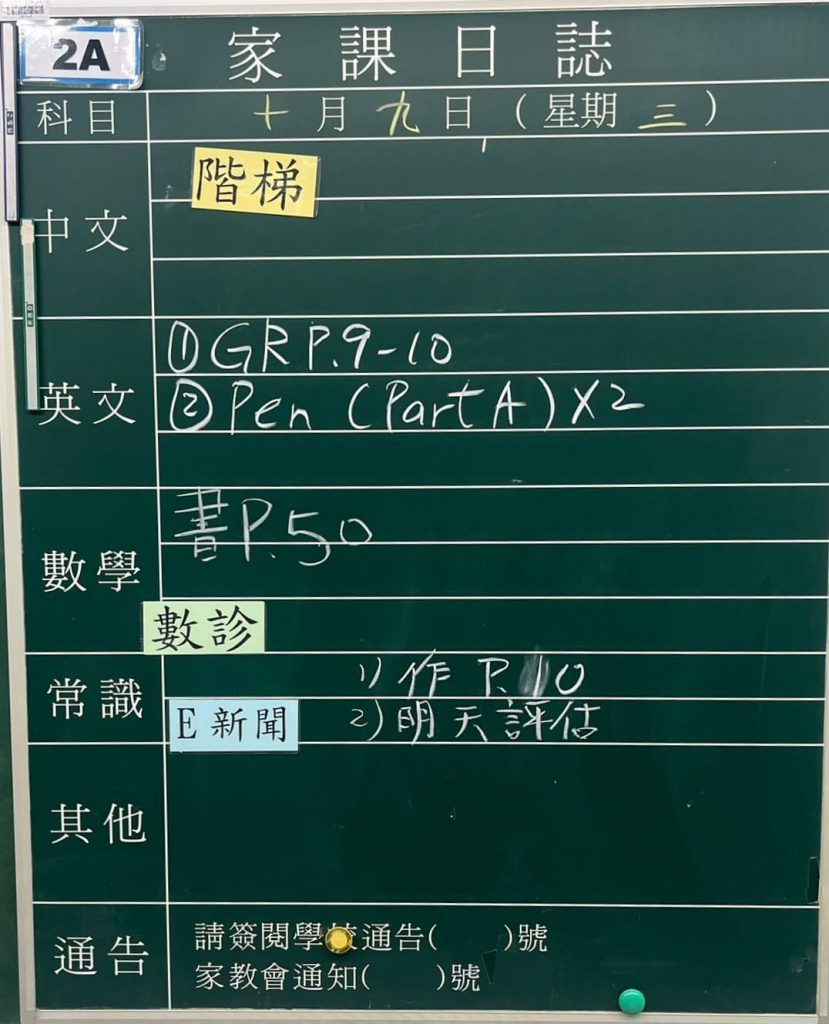 2A
家課日誌
科目 十月九日（星期三）
中文
階梯
英文
①GR P.9-10
②Pen (Part A) X2
數學
書P.50
數診
常識
1) 作 P.10
E 新聞 2) 明天評估
其他
通告
請簽閱學校通告( )號
家教會通知( )號